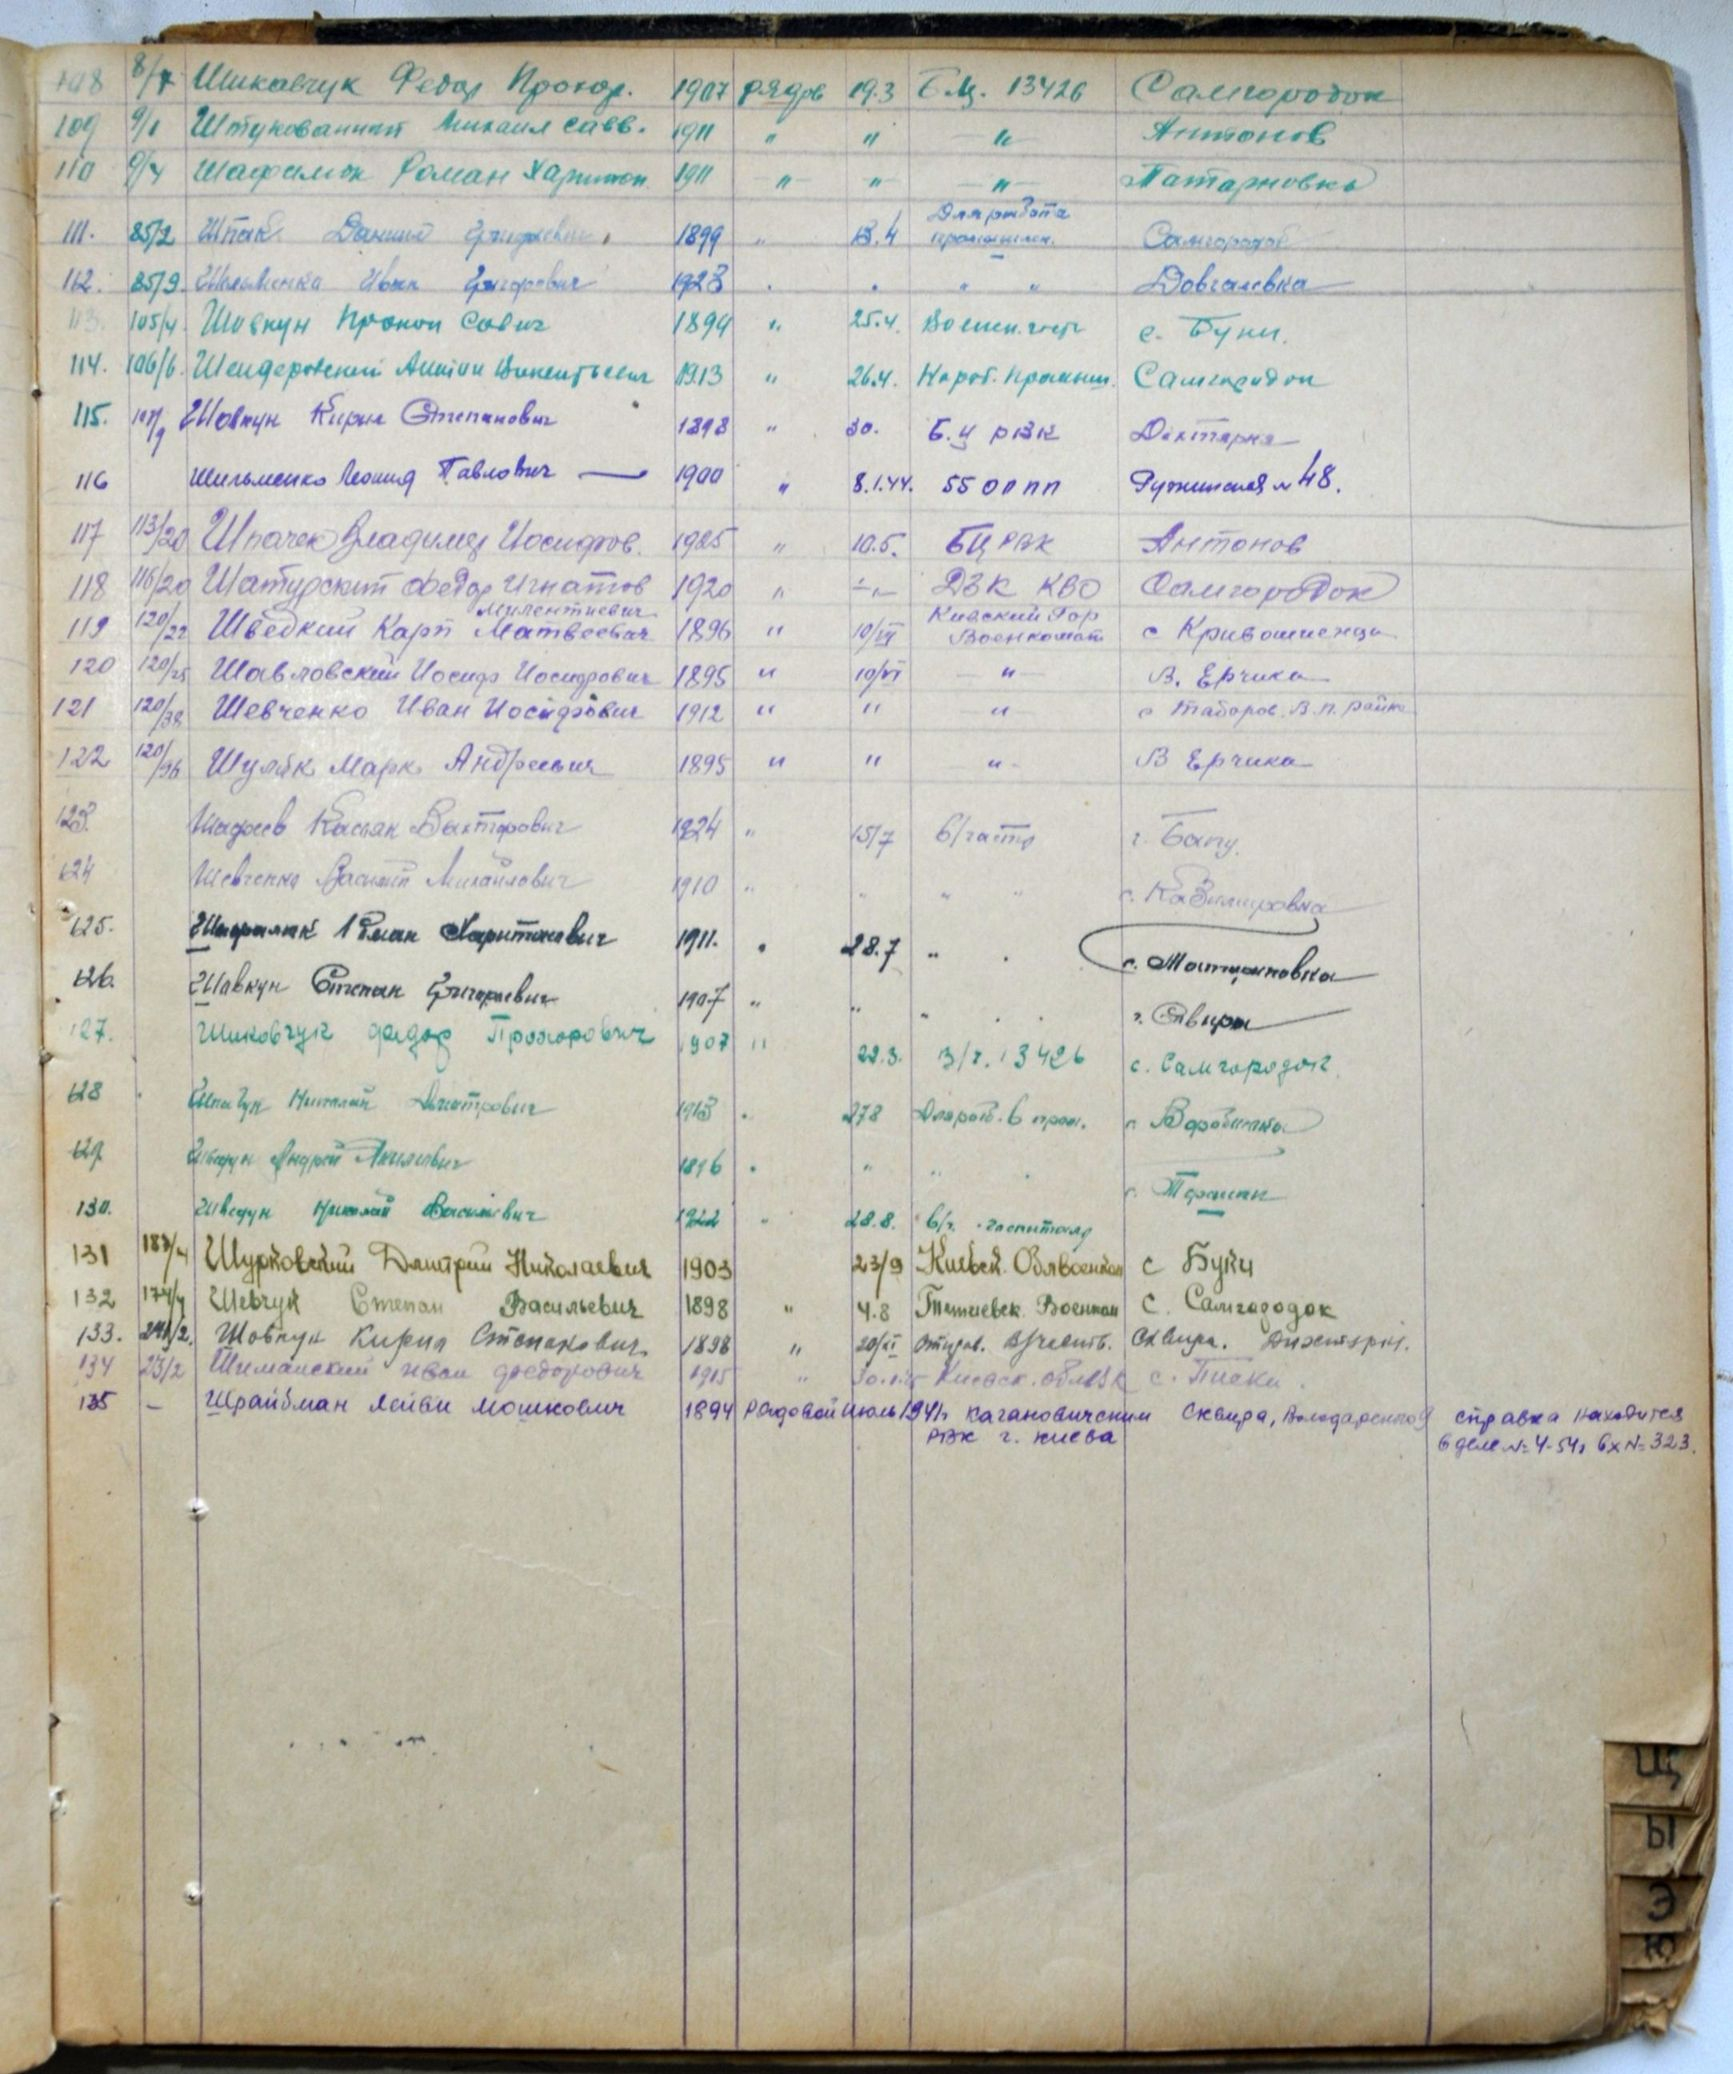 108 8/7 Шикавчук Федор Прохор. 1907 рядов 19.3 Б.Ц. 13426 Самгородок
109 9/1 Штукованный Михаил Савв. 1911 " " —"— Антонов
110 9/4 Шафалюк Роман Харитон 1911 —"— —"— —"— Татариовка
111. 85/2 Шпак Даниил Григорьевич 1899 " 13.4 Для работа промышлен. Самгородок
112. 85/9. Шельменка Иван Григорович 1923 " " " " Довгалевка
113. 105/4. Шовкун Прокоп Савич 1894 " 25.4. Воинск. часть с. Буки.
114. 106/6. Шендеровский Антон Викентьевич 1913 " 26.4. На роб. промыш. Самгородок
115. 107/9 Шовкун Кирил Степанович 1898 " 30. Б.Ц РВК Дихтярка
116 Шильменко Леонид Павлович — 1900 " 8.1.44. 55 ОППП Ружинская № 48.
117 113/20 Шпачек Владимир Иосифов. 1925 " 10.5. БЦ РВК Антонов
118 116/20 Шатурский Федор Игнатов 1920 " —"— ДВК КВО Самгородок
Милентиевич
119 120/22 Шведкий Карп Матвеевич 1896 " 10/VI Киевский Гор Военкомат с Кривошиенци
120 120/25 Шавловский Иосиф Иосифович 1895 " 10/VI —"— В. Ерчики
121 120/38 Шевченко Иван Иосифович 1912 " " " с Таборов. В.п. района
122 120/96 Шуляк Марк Андреевич 1895 " " " В Ерчики
123. Шафиев Виктррович 1924 " 15/7 в/часть г. Баку.
124 Шевченко Василий Михайлович 1910 " " " " с. Казимировка
125. Шафалюк Роман Харитонович 1911. " 28.7 " " с.
126. Шавкун Степан Григориевич 1907 " " " " " г. Сквира
127. Шиковчук Федор Прохорович 1907 " 22.3. в/ч. 13426 с. Самгородок
128 Шпачук Николай Дмитрович 1913 " 27.8 Для роб. в пром.
129. Шведун Андрей 1896 " " " "
130. Шведун Николай Василиевич 1922 " 28.8. в/ч. госпиталь
131 183/4 Шурковский Дмитрий Николаевич 1903 23/9 Киевск. Облвоенком с Буки
132 174/4 Шевчук Степан Васильевич 1898 " 4.8 Тетиевск. Военком с. Самгородок
133. 241/2. Шовкун Кирил Степанович. 1898 " 20/XI Сквира.
134 23/2 Шиманский Иван Федорович 1915 " Киевск. облВК с. Писки.
135 — Шрайбман Лейви Мошкович 1894 Рядовой июль 1941г Кагановичским Сквира, Володарской справка находится
РВК г. Киева в деле №4-54г вх № 323.
Щ
Ы
Э
Ю